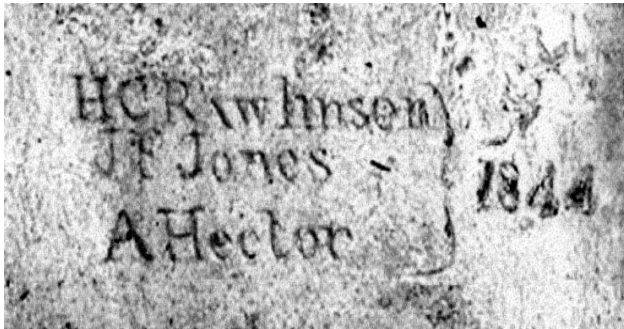 H C Rawlinson
J F Jones
A Hector
1844